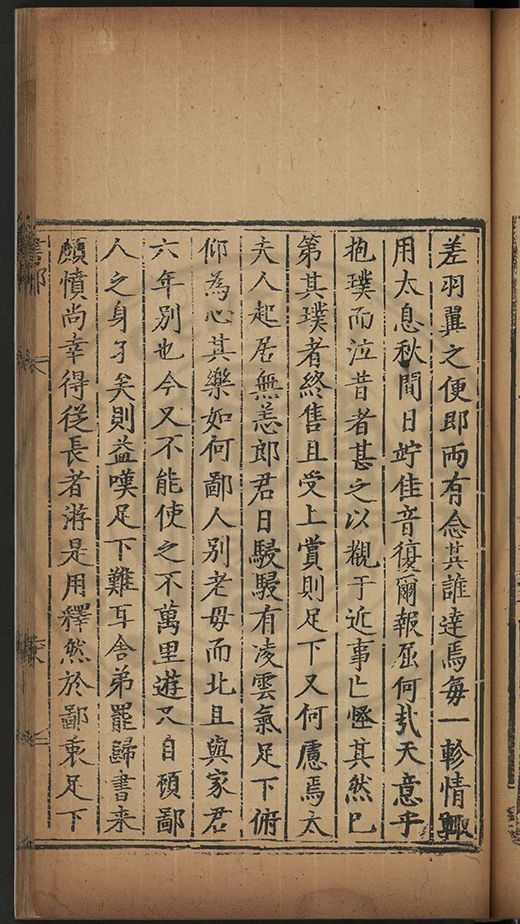 差羽翼之便即两有念其誰達焉每一軫情輙
用太息秋間日竚佳音復爾報屈何哉天意乎
抱璞而泣昔者甚之以覩于近事亡恠其然巳
第其璞者終售且受上賞則足下又何慮焉太
夫人起居無恙郎君日駸駸有凌雲氣足下俯
仰為心其樂如何鄙人别老母而北且與家君
六年别也今又不能使之不萬里遊又自顧鄙
人之身孑矣則益嘆足下難耳舍弟罷歸書来
頗憤尚幸得従長者游是用釋然於鄙衷足下